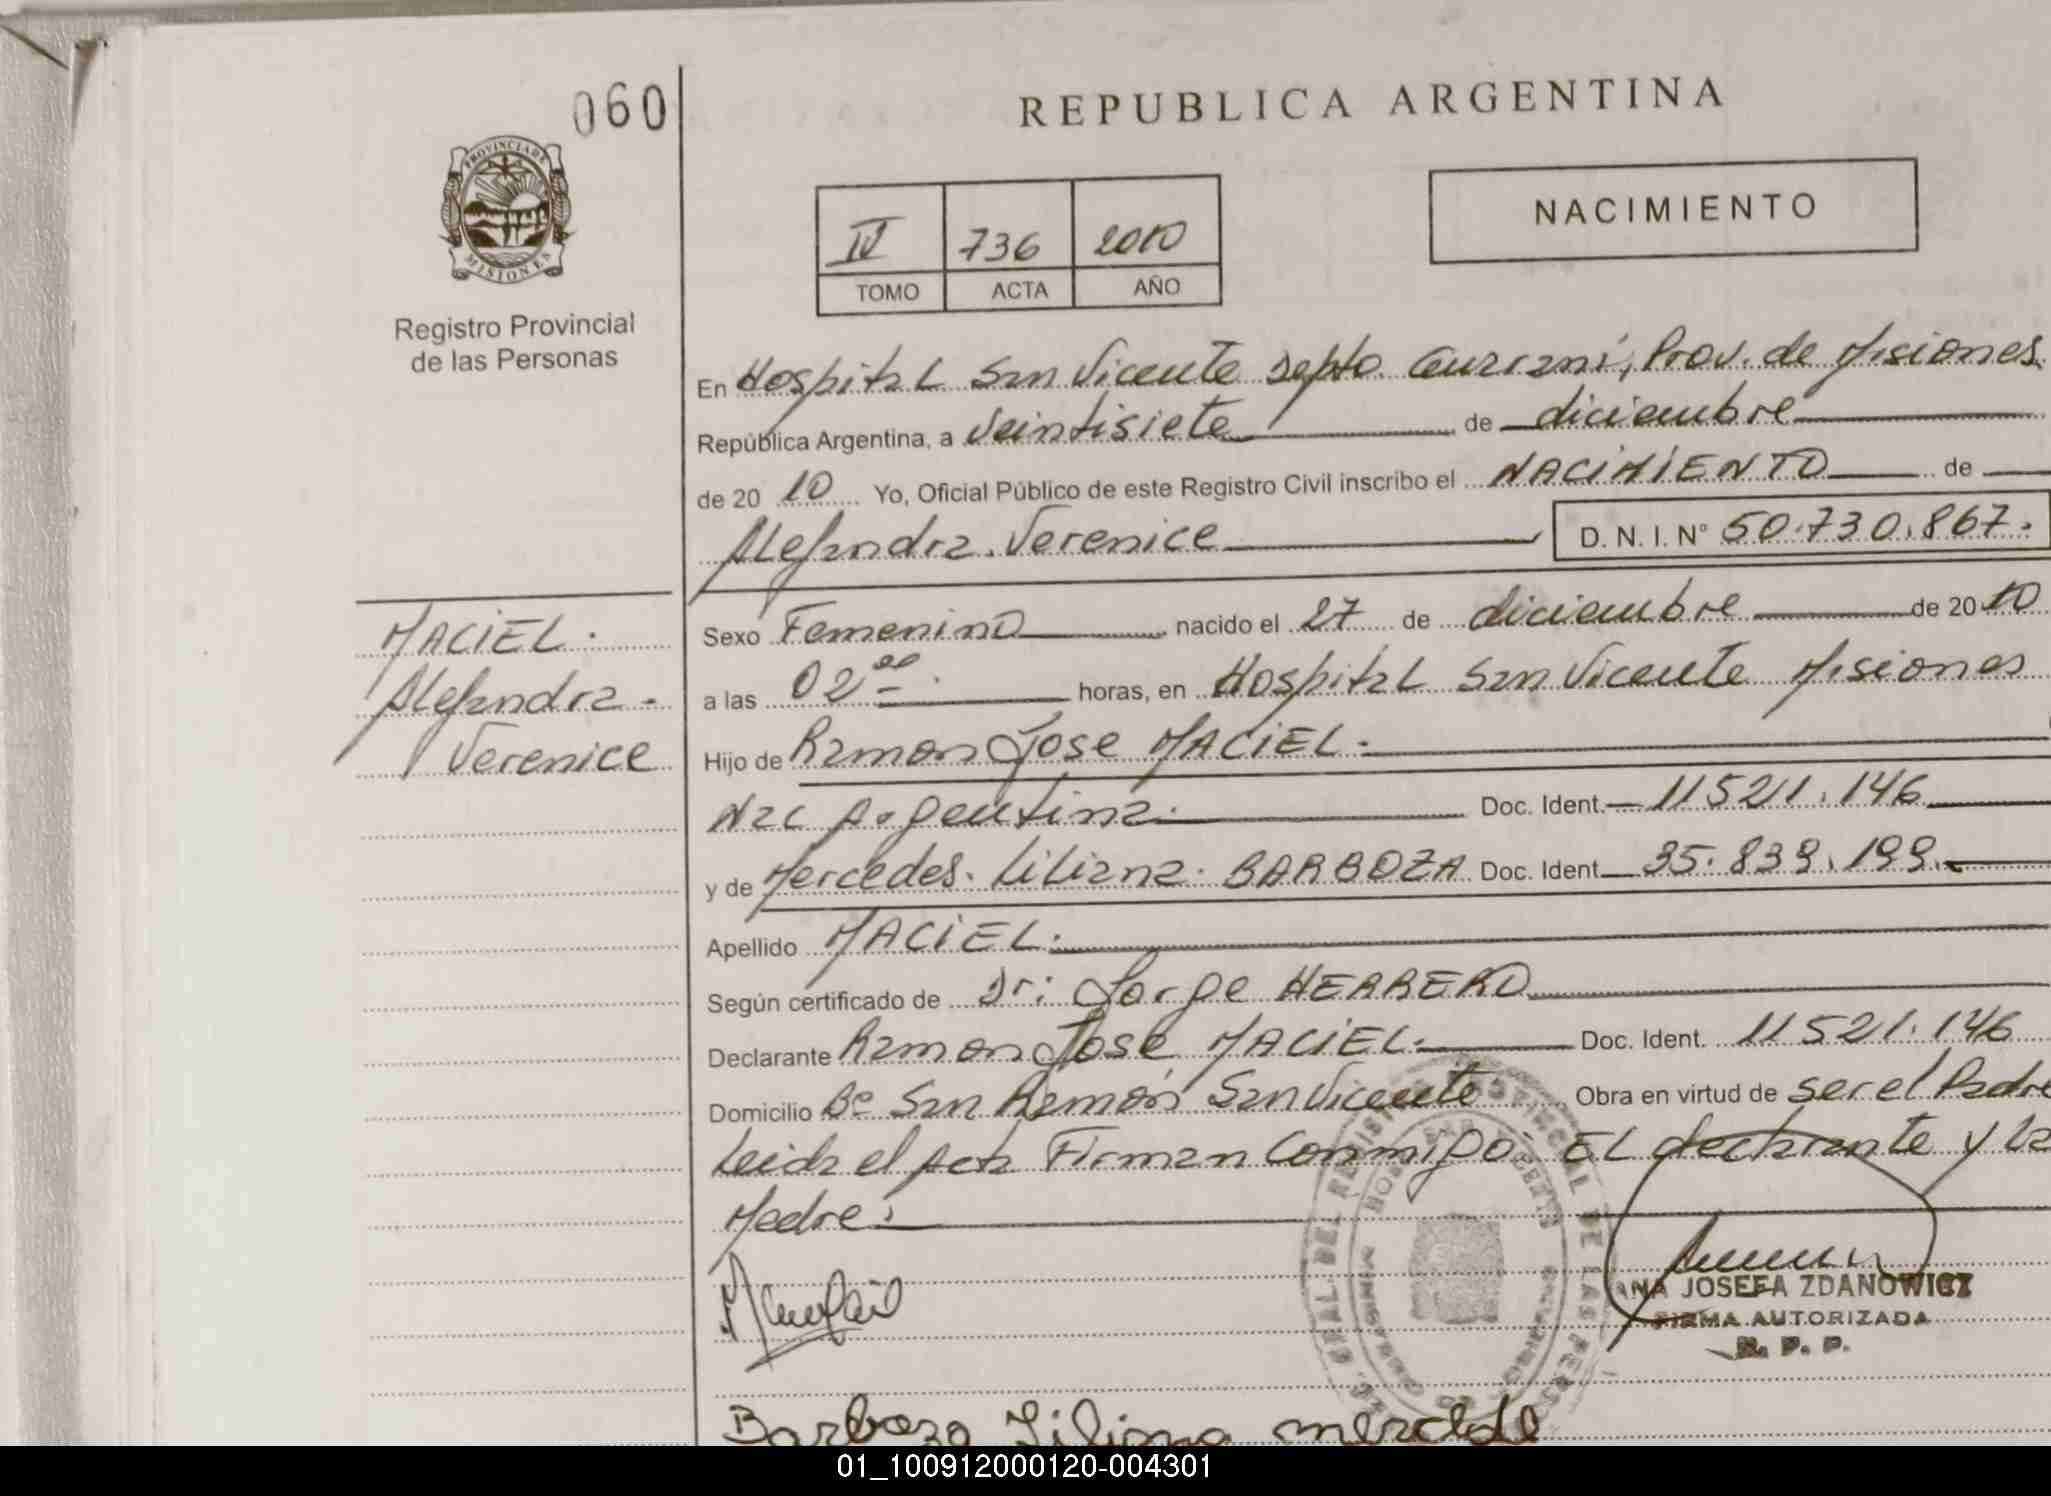 060
REPUBLICA ARGENTINA
PROVINCIA DE
MISIONES
Registro Provincial
de las Personas
IV 736 2010
TOMO ACTA AÑO
NACIMIENTO
En Hospital San Vicente Depto. Guaraní, Prov. de Misiones
República Argentina, a veintisiete de diciembre
de 20 10 Yo, Oficial Público de este Registro Civil inscribo el NACIMIENTO de
Alejandra Verenice D. N. I. N° 50.730.867.
MACIEL.
Alejandra
Verenice
Sexo Femenino nacido el 27 de diciembre de 20 10
a las 02 00 horas, en Hospital San Vicente Misiones
Hijo de Ramon Jose MACIEL.
Nac Argentina. Doc. Ident. 11521.146
y de Mercedes. Liliana. BARBOZA Doc. Ident. 35.839.199.
Apellido MACIEL.
Según certificado de Dr: Jorge HERRERO
Declarante Ramon José MACIEL. Doc. Ident. 11521.146
Domicilio Bº San Ramón San Vicente Obra en virtud de ser el Padre
Leida el Acta Firman Conmigo: EL declarante y La
Madre.
ANA JOSEFA ZDANOWICZ
FIRMA AUTORIZADA
R. P. P.
Barboza Liliana
01_100912000120-004301